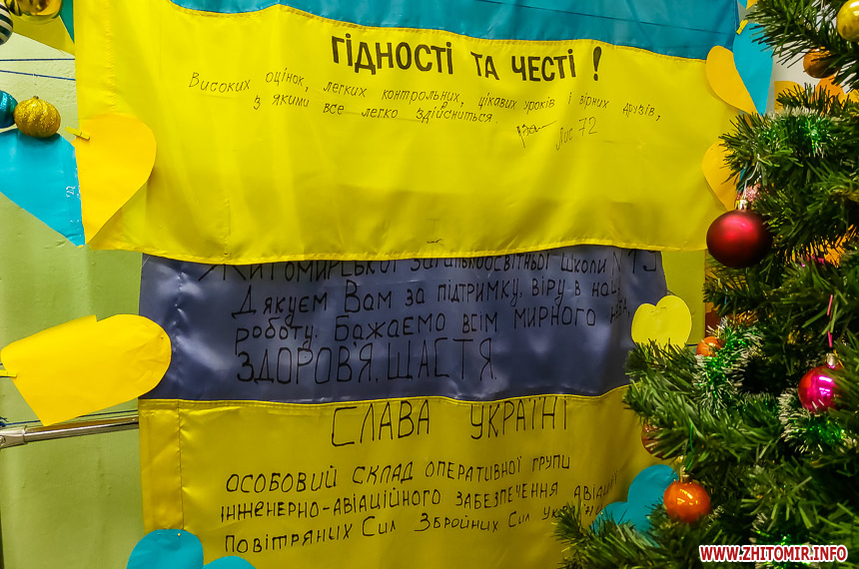 ГІДНОСТІ ТА ЧЕСТІ !
Високих оцінок, легких контрольних, цікавих уроків і вірних друзів,
з якими все легко здійсниться.
Лис 72
Житомирської загальноосвітньої школи N
Дякуєм Вам за підтримку, віру в наш
роботу. Бажаємо всім мирного
ЗДОРОВ'Я, ЩАСТЯ.
СЛАВА УКРАЇНІ
ОСОБОВИЙ СКЛАД ОПЕРАТИВНОЇ ГРУПИ
ІНЖЕНЕРНО-АВІАЦІЙНОГО ЗАБЕЗПЕЧЕННЯ АВІАЦІЇ
ПОВІТРЯНИХ СИЛ ЗБРОЙНИХ СИЛ УКРАЇНИ
WWW.ZHITOMIR.INFO